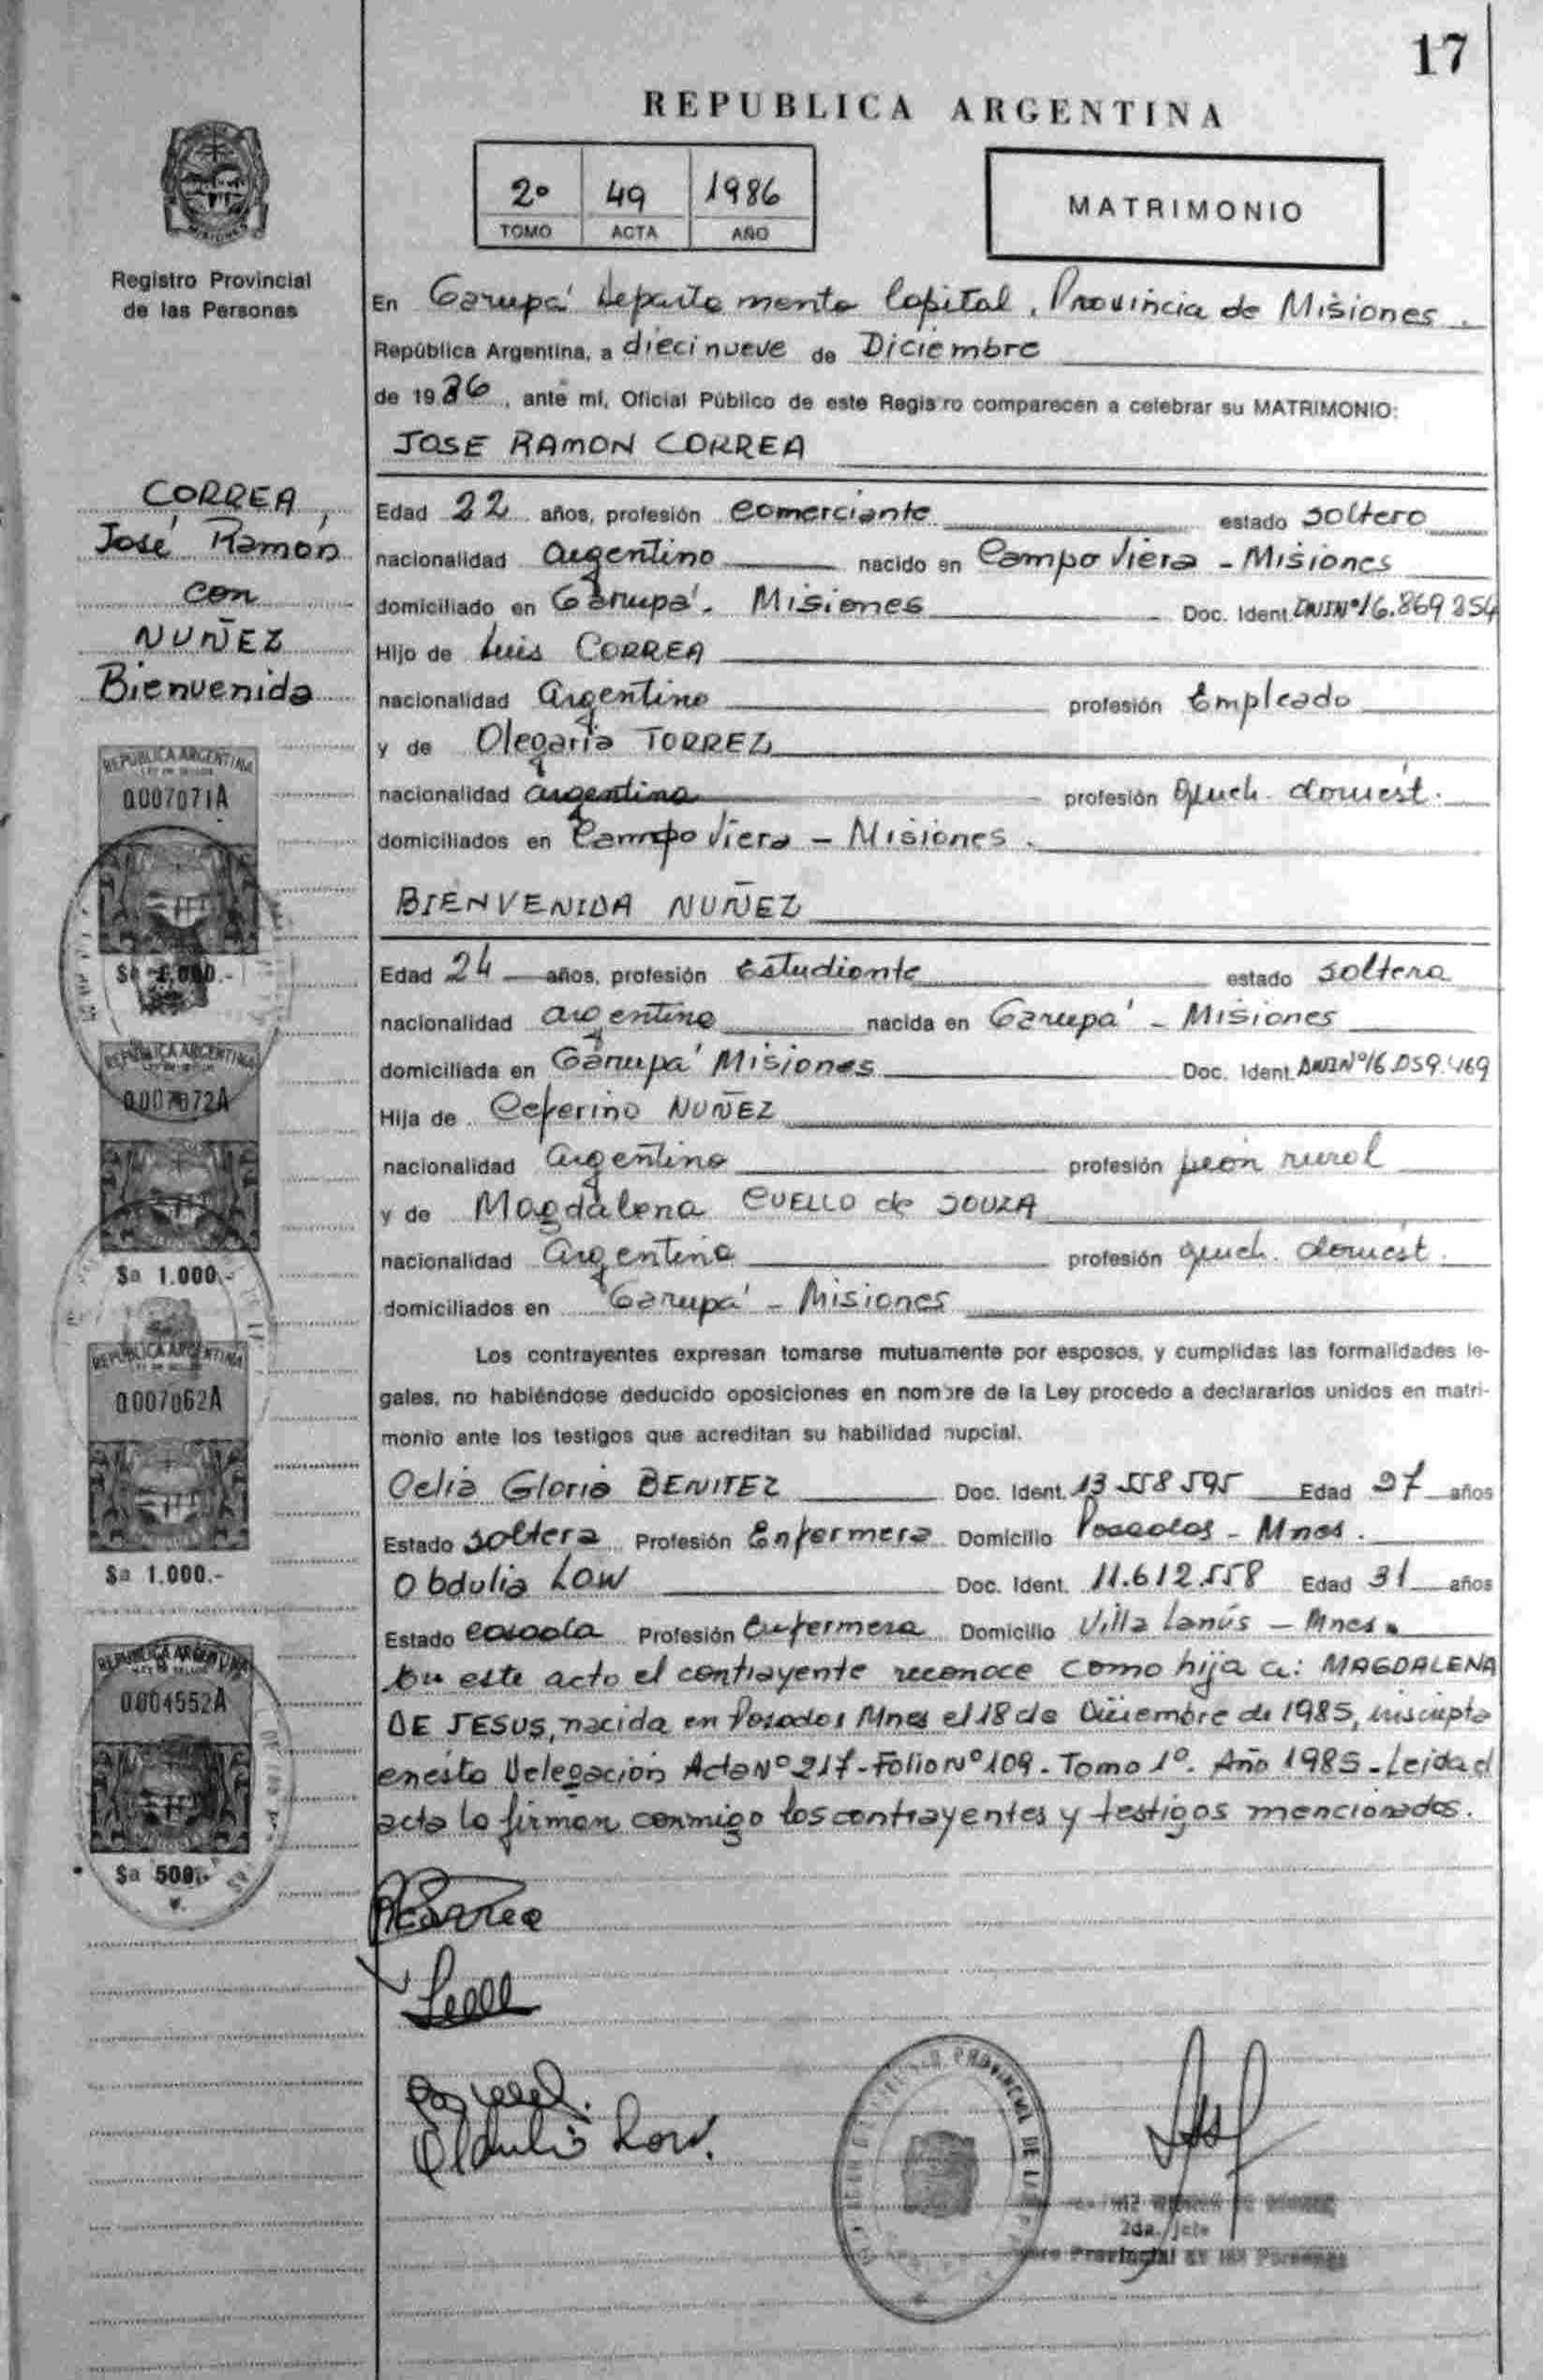 17
REPUBLICA ARGENTINA
2º 49 1986
TOMO ACTA AÑO
MATRIMONIO
MISIONES
Registro Provincial
de las Personas
CORREA,
José Ramón
con
NUÑEZ
Bienvenida
REPUBLICA ARGENTINA
0.007071A
REPUBLICA ARGENTINA
0.007072A
$a 1.000.-
REPUBLICA ARGENTINA
0.007062A
$a 1.000.-
REPUBLICA ARGENTINA
0.004552A
$a 500.-
En Garupá Departamento Capital, Provincia de Misiones.
República Argentina, a diecinueve de Diciembre
de 1986, ante mí, Oficial Público de este Registro comparecen a celebrar su MATRIMONIO:
JOSE RAMON CORREA
Edad 22 años, profesión comerciante estado soltero
nacionalidad argentino nacido en Campo Viera - Misiones
domiciliado en Garupá. Misiones Doc. Ident. DNI Nº 16.869.254
Hijo de Luis CORREA
nacionalidad argentino profesión Empleado
y de Olegaria TORREZ
nacionalidad argentina profesión queh. domést.
domiciliados en Campo Viera - Misiones.
BIENVENIDA NUÑEZ
Edad 24 años, profesión Estudiante estado soltera
nacionalidad argentina nacida en Garupá - Misiones
domiciliada en Garupá Misiones Doc. Ident. DNI Nº 16.059.469
Hija de Ceferino NUÑEZ
nacionalidad argentino profesión peón rural
y de Magdalena CUELLO de SOUZA
nacionalidad argentina profesión queh. domést.
domiciliados en Garupá - Misiones
Los contrayentes expresan tomarse mutuamente por esposos, y cumplidas las formalidades le-
gales, no habiéndose deducido oposiciones en nombre de la Ley procedo a declararlos unidos en matri-
monio ante los testigos que acreditan su habilidad nupcial.
Celia Gloria BENITEZ Doc. Ident. 13.558.595 Edad 27 años
Estado soltera Profesión Enfermera Domicilio Posadas - Mnes.
Obdulia LOW Doc. Ident. 11.612.558 Edad 31 años
Estado casada Profesión Enfermera Domicilio Villa Lanús - Mnes.
En este acto el contrayente reconoce como hija a: MAGDALENA
DE JESUS, nacida en Posadas Mnes el 18 de Diciembre de 1985, inscripta
en esta Delegación Acta Nº 217 - Folio Nº 109 - Tomo 1º. Año 1985 - Leida el
acta la firman conmigo los contrayentes y testigos mencionados.
Obdulia Low.
2da. Jefe
Provincial de las Personas